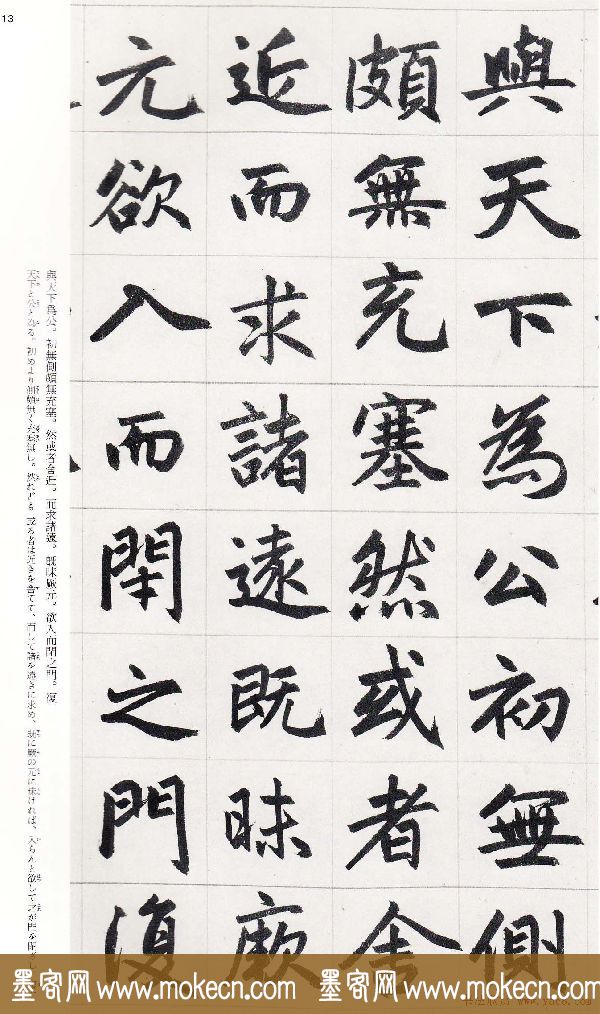 13
與天下為公初無側
頗無充塞然或者舍
近而求諸遠既昧厥
元欲入而閉之門復
與天下爲公。初無側頗無充塞。然或者舍近。而求諸遠。既昧厥元。欲入而閉之門。復
天下と公と為る。初めより側頗無く充塞無し。然れども或る者は近きを舍てて、而して諸を遠きに求め、既に厥の元に昧ければ、入らんと欲して
墨客网 www.mokecn.com 墨客网 www.mokecn.com